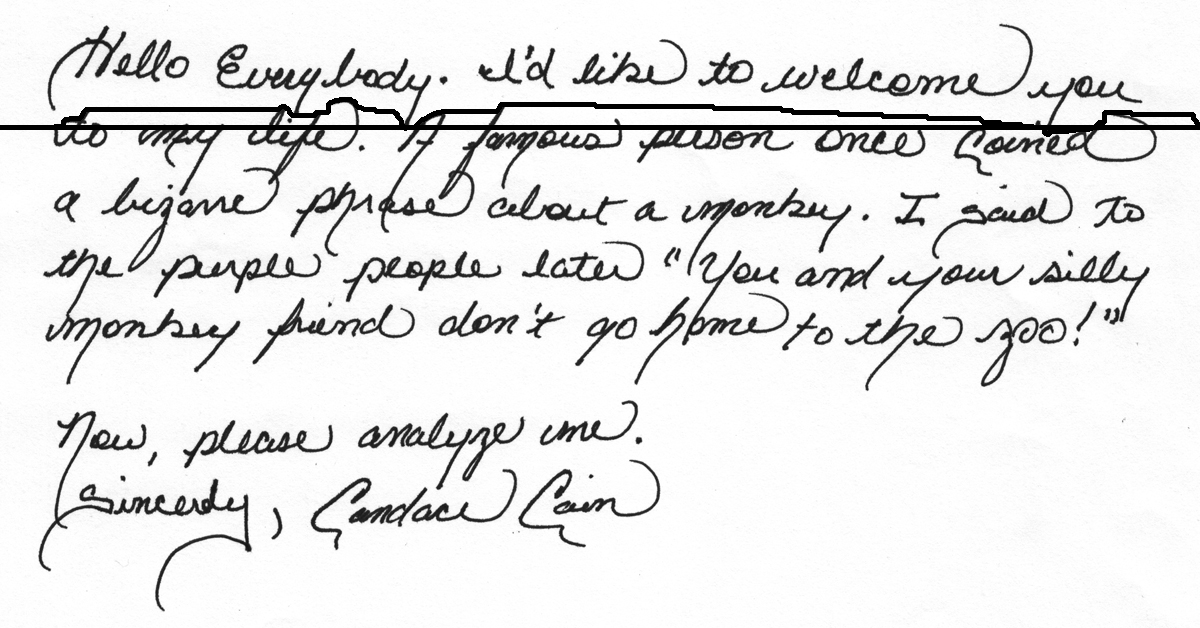 Hello Everybody. I'd like to welcome you
to my life. A famous person once Coined
a bizarre phrase about a monkey. I said to
the purple people later "You and your silly
monkey friend don't go home to the zoo!"
Now, please analyze me.
Sincerely, Candace Cain